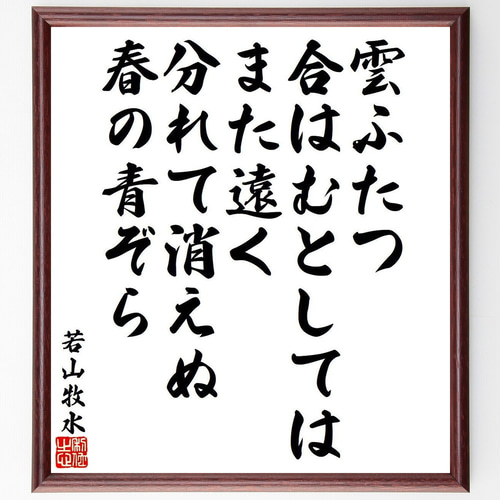 雲ふたつ
合はむとしては
また遠く
分れて消えぬ
春の青ぞら
若山牧水